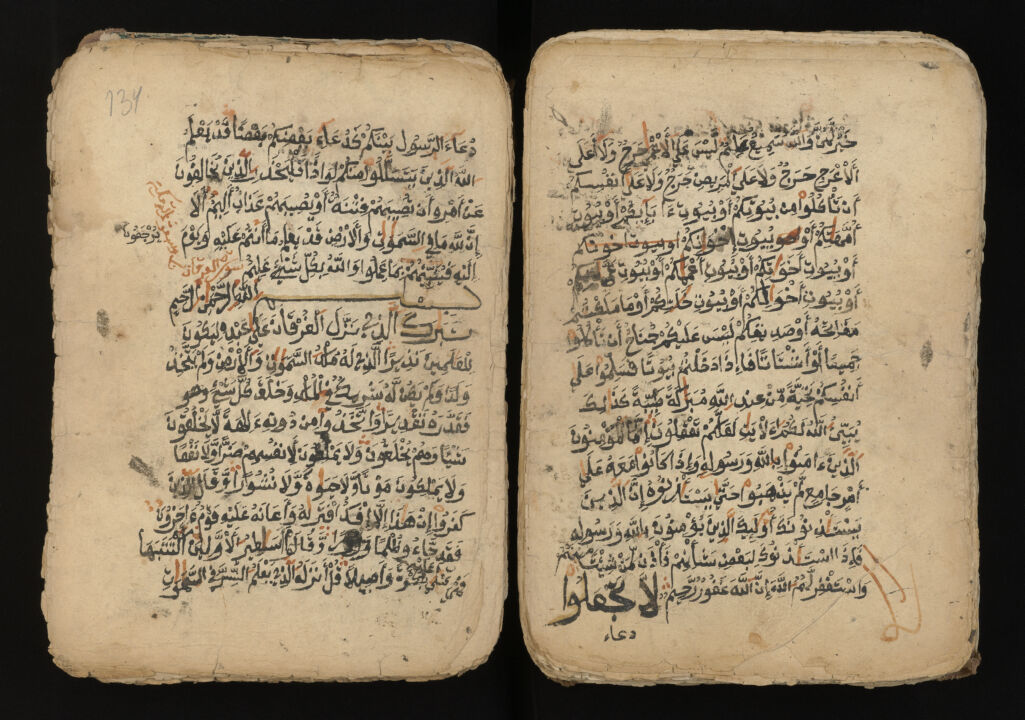 خير لهن والله سميع عليم ليس على الأعمى حرج ولا على
الأعرج حرج ولا على المريض حرج ولا على أنفسكم
أن تأكلوا من بيوتكم أو بيوت ءابائكم أو بيوت
أمهاتكم أو بيوت إخوانكم أو بيوت
أو بيوت أخواتكم أو بيوت أعمامكم أو بيوت
أو بيوت أخوالكم أو بيوت خالاتكم أو ما ملكتم
مفاتحه أو صديقكم ليس عليكم جناح أن تأكلوا
جميعا أو أشتاتا فإذا دخلتم بيوتا فسلموا على
أنفسكم تحية من عند الله مباركة طيبة كذلك
يبين الله لكم الأيات لعلكم تعقلون إنما المؤمنون
الذين ءامنوا بالله ورسوله وإذا كانوا معه على
أمر جامع لم يذهبوا حتى يستأذنوه إن الذين
يستأذنونك أوليك الذين يؤمنون بالله ورسوله
فإذا استأذنوك لبعض شأنهم فأذن لمن شئت منهم
واستغفر لهم الله إن الله غفور رحيم لا تجعلوا
دعاء
134
دعاء الرسول بينكم كدعاء بعضكم بعضا قد يعلم
الله الذين يتسللون منكم لواذا فليحذر الذين يخالفون
عن أمره أن تصيبهم فتنة أو يصيبهم عذاب أليم ألا
إن لله ما في السموات والأرض قد يعلم ما أنتم عليه ويوم
يرجعون
إليه فينبئهم بما عملوا والله بكل شيء عليم
سورة الفرقان
بسم الله الرحمن الرحيم
تبرك الذي نزل الفرقان على عبده ليكون
للعلمين نذيرا الذي له ملك السموات والأرض ولم يتخذ
ولدا ولم يكن له شريك في الملك وخلق كل شيء وهو
فقدره تقديرا واتخذوا من دونه ءالهة لا يخلقون
شيئا وهم يخلقون ولا يملكون لأنفسهم ضرا ولا نفعا
ولا يملكون موتا ولا حيوة ولا نشورا وقال الذين
كفروا إن هذا إلا إفك افتره وأعانه عليه قوم ءاخرون
فقد جاءو ظلما وزورا وقالوا أسطير الأولين اكتتبها
فهي تملى عليه بكرة وأصيلا قل أنزله الذي يعلم السر في السموات